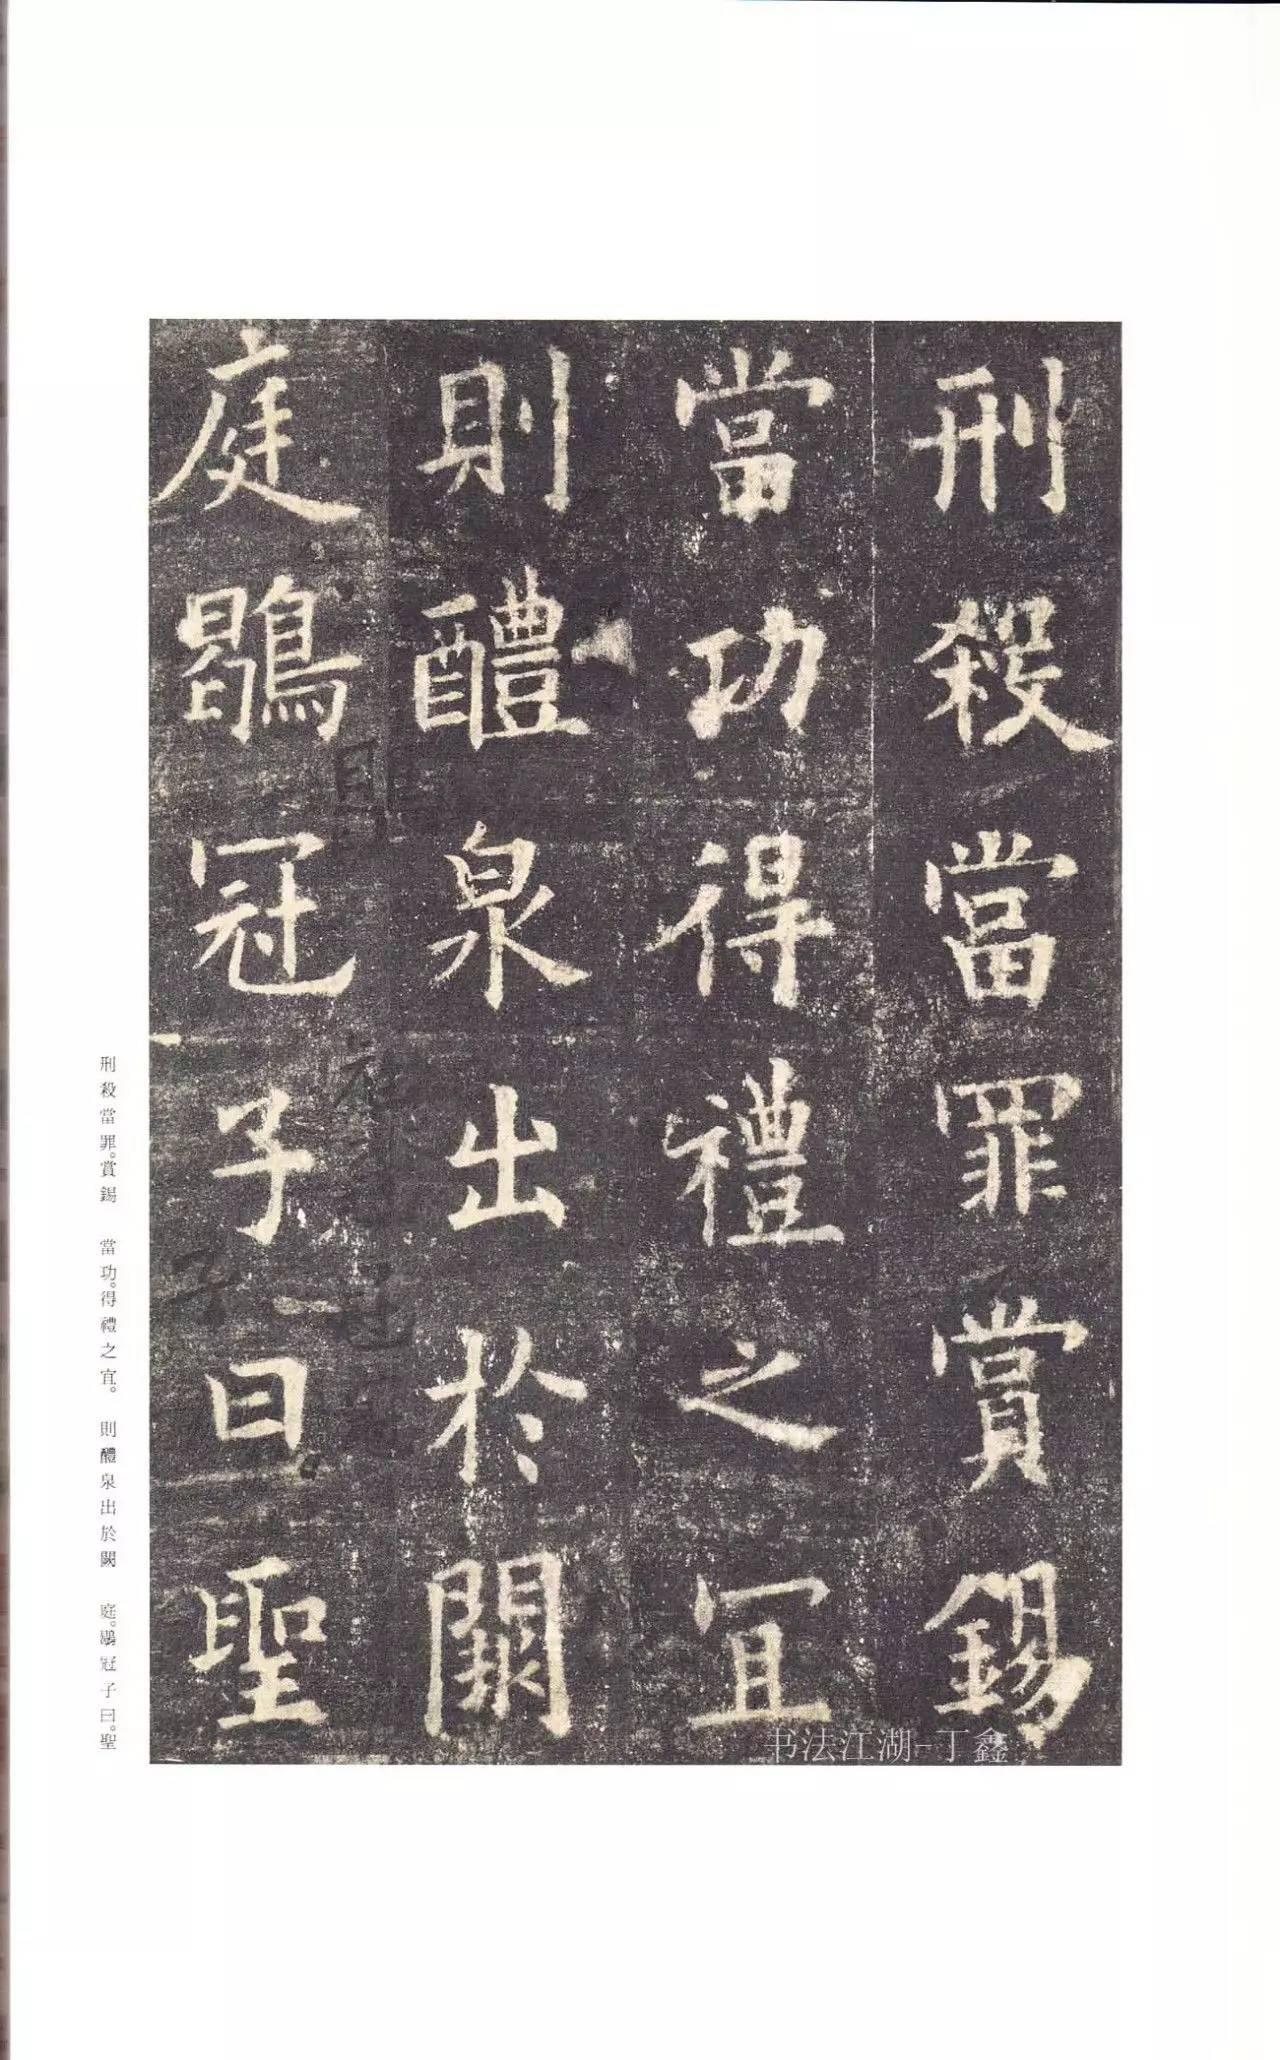 刑殺當罪賞錫
當功得禮之宜
則醴泉出於闕
庭鶡冠子曰聖
刑殺當罪。賞錫 當功。得禮之宜。 則醴泉出於闕 庭。鶡冠子曰。聖
书法江湖-丁鑫